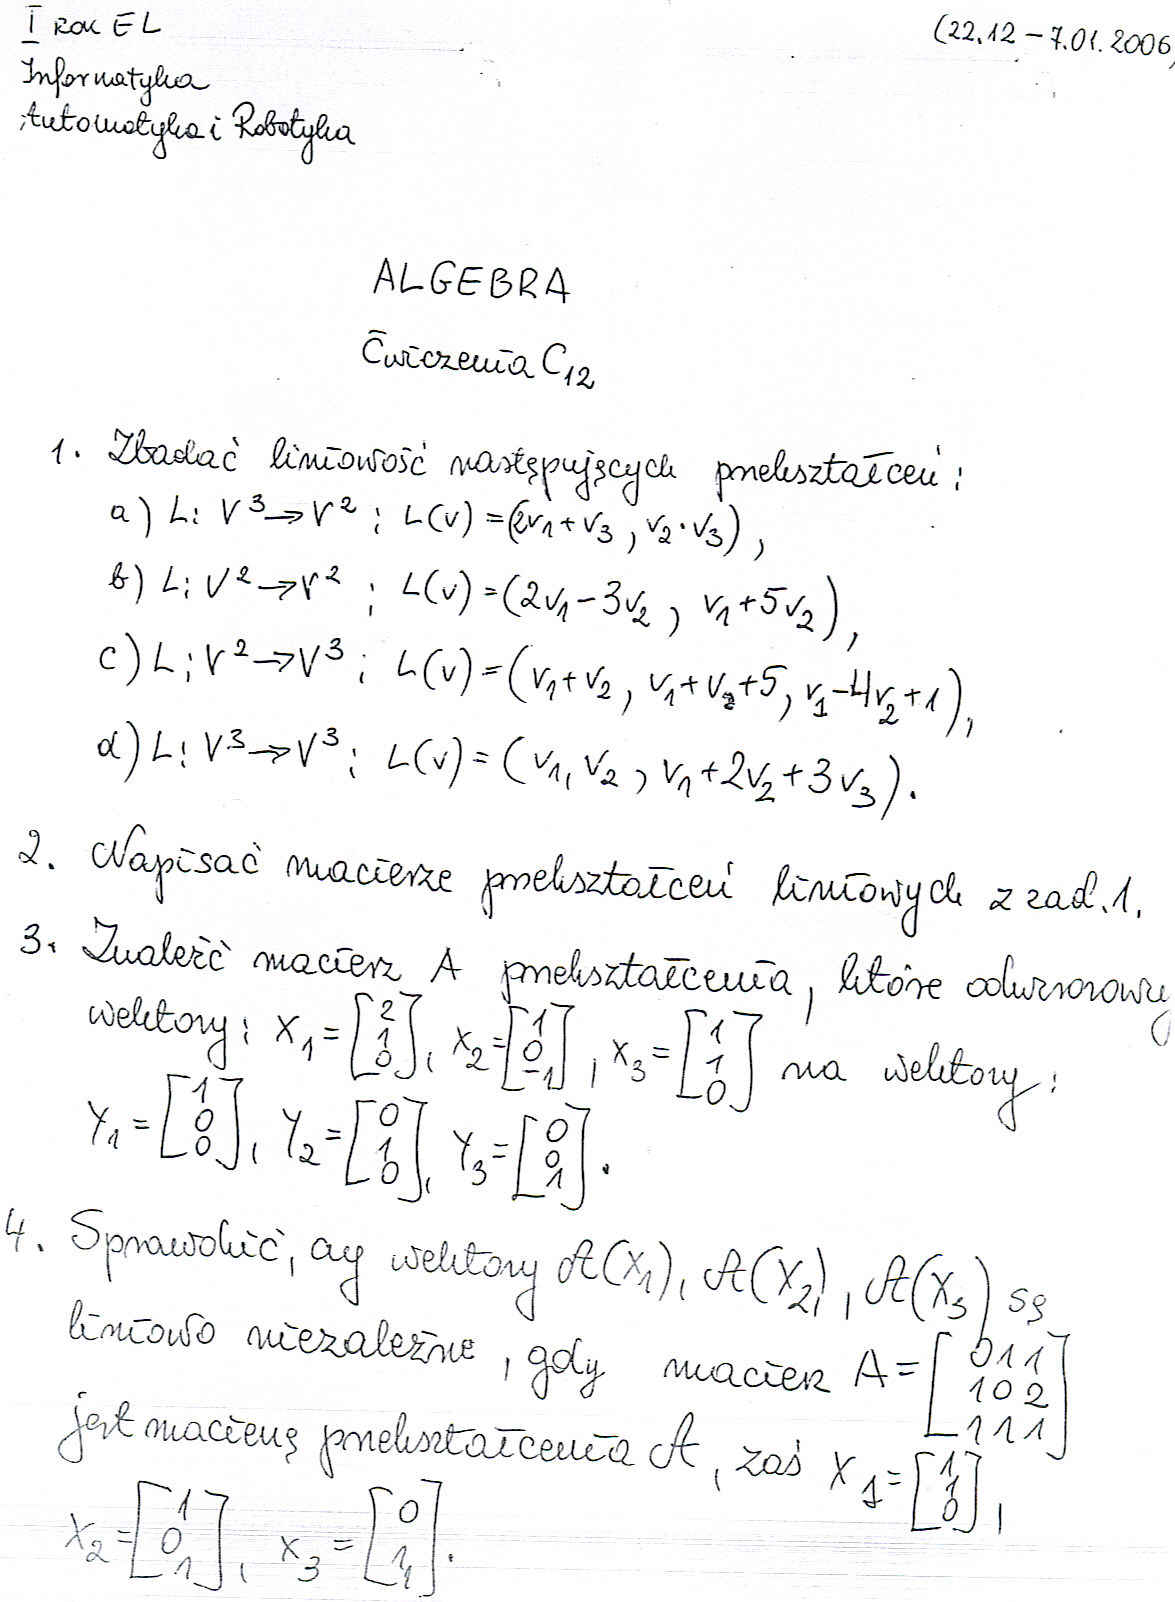 I ROK EL
(22.12 – 7.01.2006,
Informatyka
Automatyka i Robotyka
ALGEBRA
Ćwiczenia C₁₂
1. Zbadać liniowość następujących przekształceń:
a) L: V³→V²; L(v) = (2v₁+v₃, v₂·v₃),
b) L: V²→V²; L(v) = (2v₁-3v₂, v₁+5v₂),
c) L: V²→V³; L(v) = (v₁+v₂, v₁+v₂+5, v₁-4v₂+1),
d) L: V³→V³; L(v) = (v₁, v₂, v₁+2v₂+3v₃).
2. Napisać macierze przekształceń liniowych z zad.1.
3. Znaleźć macierz A przekształcenia, które odwzorowuje
wektory: X₁ = [2 1 0], X₂ = [1 0 -1], X₃ = [1 1 0] na wektory:
Y₁ = [1 0 0], Y₂ = [0 1 0], Y₃ = [0 0 1].
4. Sprawdzić, czy wektory A(X₁), A(X₂), A(X₃) są
liniowo niezależne, gdy macierz A = [0 1 1 1 0 2 1 1 1]
jest macierzą przekształcenia A, zaś X₁ = [1 1 0],
X₂ = [1 0 1], X₃ = [0 1 1].